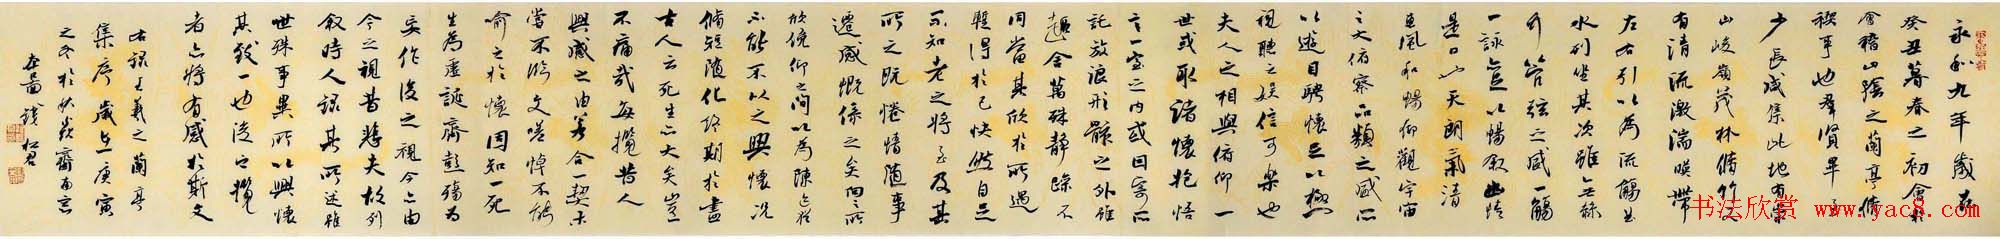 永和九年歲在
癸丑暮春之初會於
會稽山陰之蘭亭脩
禊事也群賢畢至
少長咸集此地有崇
山峻嶺茂林脩竹又
有清流激湍暎帶
左右引以為流觴曲
水列坐其次雖無絲
竹管弦之盛一觴
一詠亦足以暢敘幽情
是日也天朗氣清
惠風和暢仰觀宇宙
之大俯察品類之盛所
以遊目騁懷足以極
視聽之娛信可樂也
夫人之相與俯仰一
世或取諸懷抱悟
言一室之內或因寄所
託放浪形骸之外雖
趣舍萬殊靜躁不
同當其欣於所遇
暫得於己快然自足
不知老之將至及其
所之既惓情隨事
遷感慨係之矣向之所
欣俛仰之間以為陳迹猶
不能不以之興懷況
脩短隨化終期於盡
古人云死生亦大矣豈
不痛哉每攬昔人
興感之由若合一契未
嘗不臨文嗟悼不能
喻之於懷固知一死
生為虛誕齊彭殤為
妄作後之視今亦由
今之視昔悲夫故列
敘時人錄其所述雖
世殊事異所以興懷
其致一也後之攬
者亦將有感於斯文
右錄王羲之蘭亭
集序歲在庚寅
之冬於秋
书法欣赏 www.yac8.com